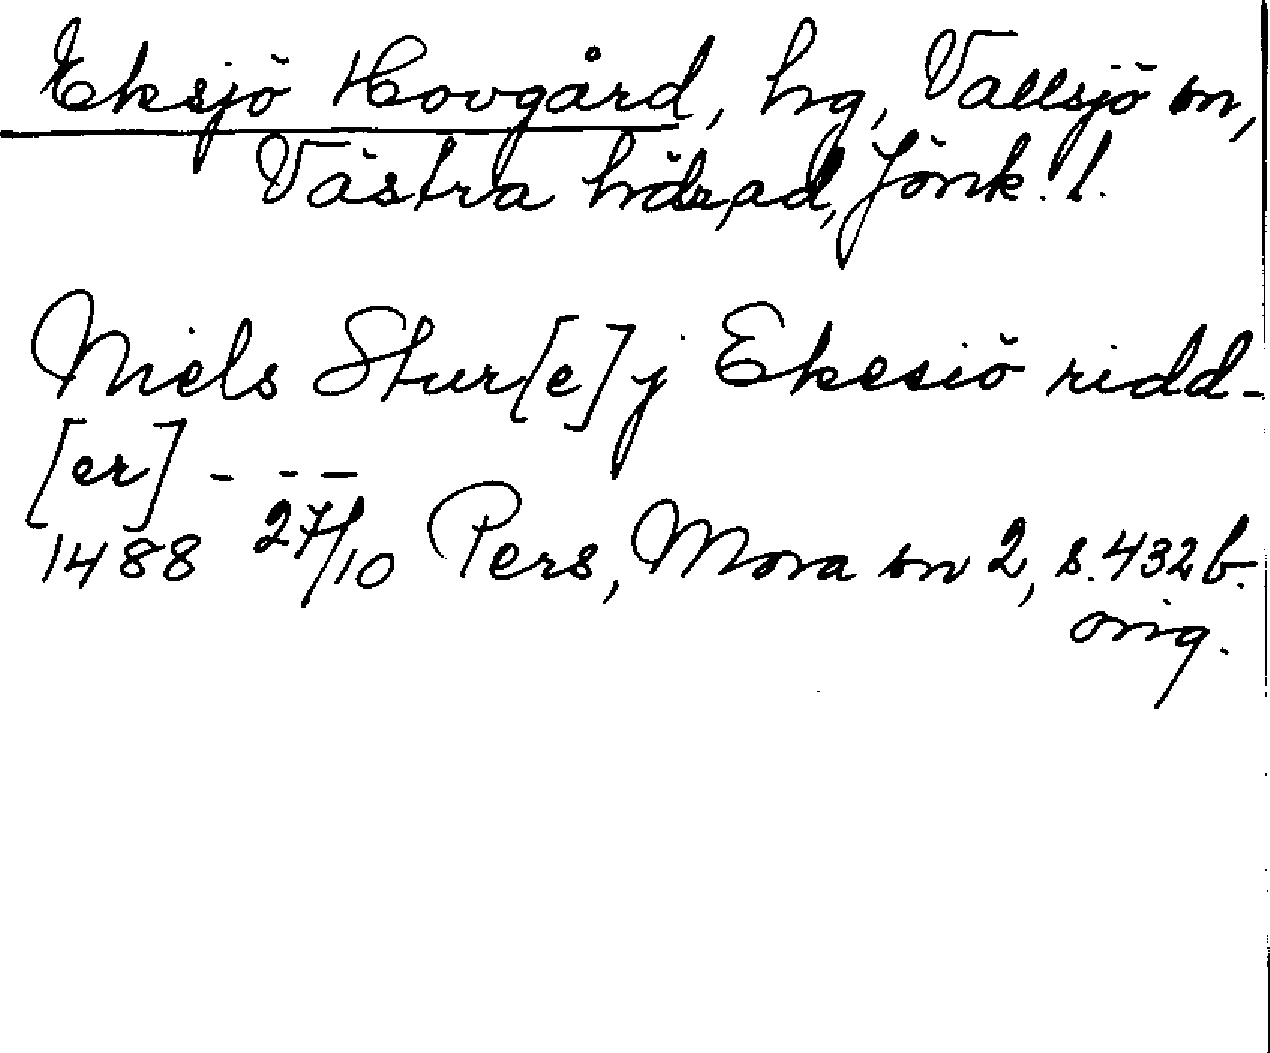 Eksjö Hovgård, hg, Vallsjö sn,
Västra härad, Jönk. l.
Niels Stur[e] j Ekesiö ridd-
[er] - - -
1488 27/10 Pers, Mora sn 2, s. 432 b.
orig.